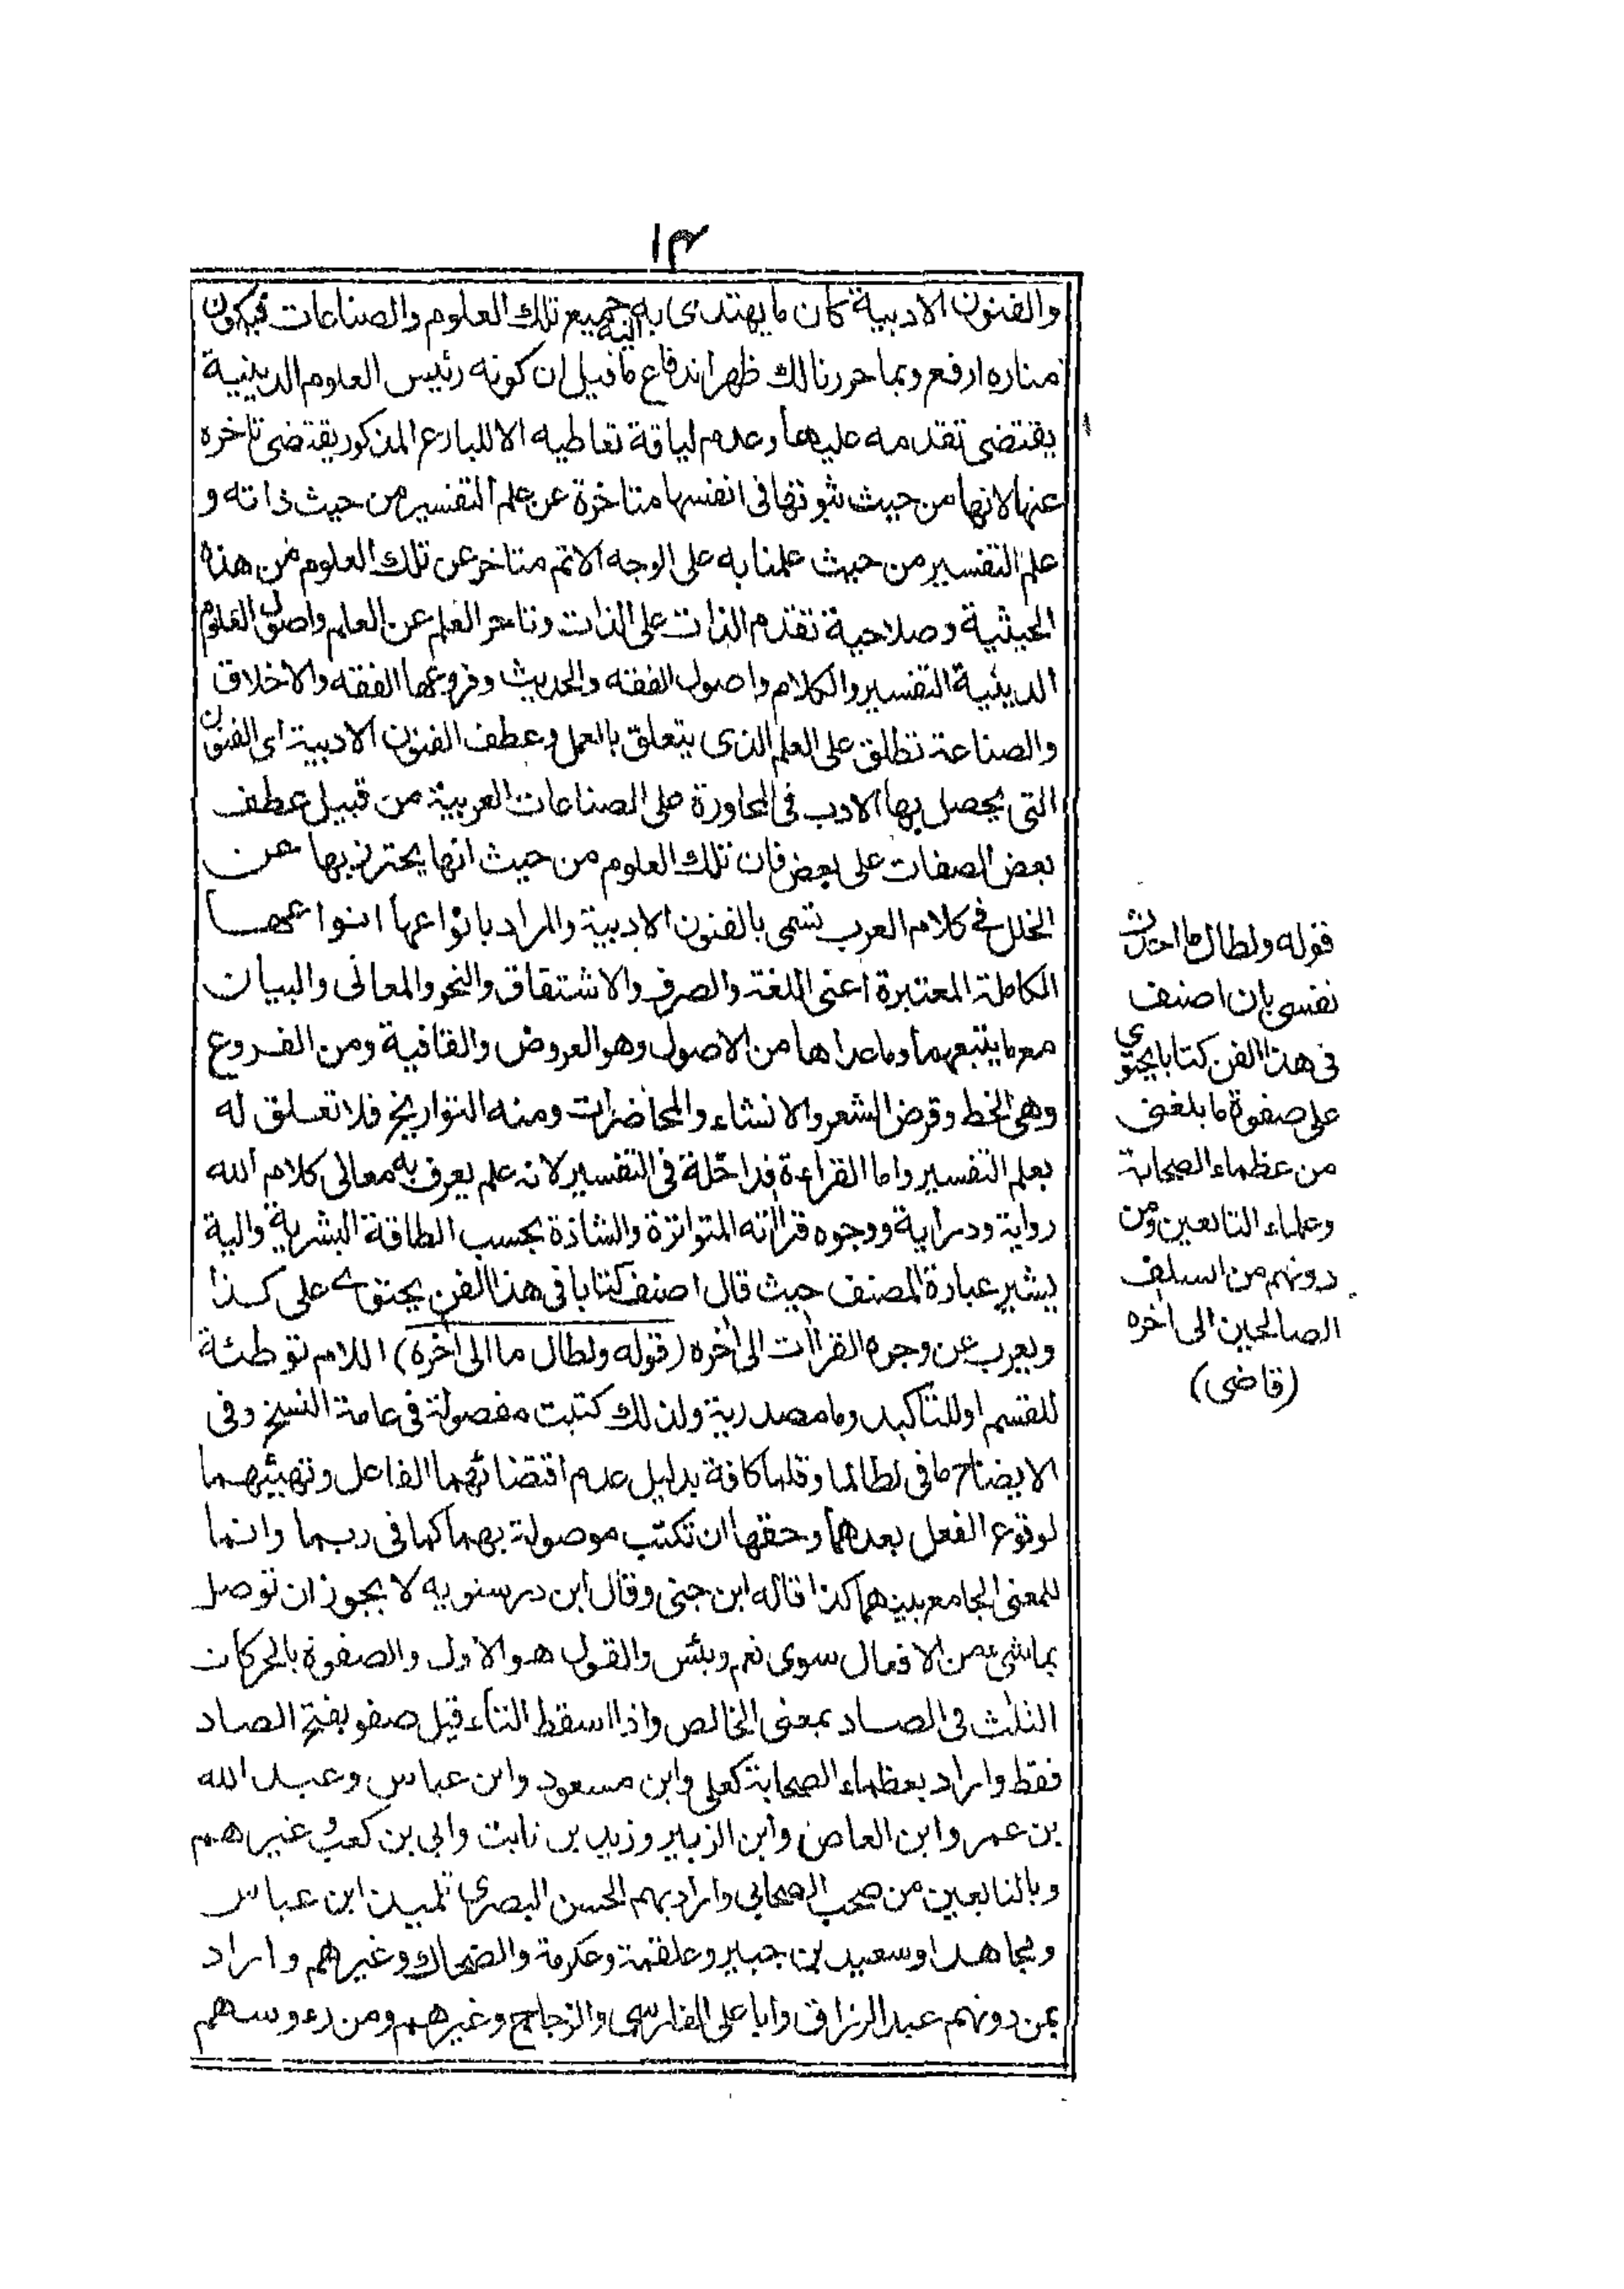 ١٣
والفنون الادبية كان ما يهتدى به اليه جميع تلك العلوم والصناعات فيكون
مناره ارفع وبما حررنا لك ظهر اندفاع ما قيل ان كونه رئيس العلوم الدينية
يقتضى تقدمه عليها وعدم لياقة تعاطيه الا للبارع المذكور يقتضى تاخره
عنها لانها من حيث ثبوتها فى انفسها متاخرة عن علم التفسير من حيث ذاته و
علم التفسير من حيث علمنا به على الوجه الاتم متاخر عن تلك العلوم فمن هذه
الحيثية وصلاحية تقدم الذات على الذات وتاخر العلم عن العلم واصول العلوم
الدينية التفسير والكلام واصول الفقه والحديث وفروعها الفقه والاخلاق
والصناعة تطلق على العلم الذى يتعلق بالعمل وعطف الفنون الادبية اى الفنون
التى يحصل بها الادب فى المحاورة على الصناعات العربية من قبيل عطف
بعض الصفات على بعض فان تلك العلوم من حيث انها يحترز بها عن
الخلل فى كلام العرب تسمى بالفنون الادبية والمراد بانواعها انواعها
الكاملة المعتبرة اعنى اللغة والصرف والاشتقاق والنحو والمعانى والبيان
مع ما يتبعهما وما عداها من الاصول وهو العروض والقافية ومن الفروع
وهى الخط وقرض الشعر والانشاء والمحاضرات ومنه التواريخ فلا تعلق له
بعلم التفسير واما القراءة فداخلة فى التفسير لانه علم يعرف به معانى كلام الله
رواية ودراية ووجوه قرأته المتواترة والشاذة بحسب الطاقة البشرية والية
يشير عبارة المصنف حيث قال اصنف كتابا فى هذا الفن يحتوى على كذا
ويعرب عن وجوه القرأات الى أخره (قوله ولطال ما الى أخره) اللام توطئة
للقسم او للتأكيد وما مصدرية ولذلك كتبت مفصولة فى عامة النسخ وفى
الايضاح ما فى لطالما وقلما كافة بدليل عدم اقتضائهما الفاعل وتهيئهما
لوقوع الفعل بعدهما وحقها ان تكتب موصولة بهما كما فى ربما وانما
للمعنى الجامع بينهما كذا قاله ابن جنى وقال ابن درستويه لا يجوز ان توصل
بما شئ من الافعال سوى نعم وبئس والقول هو الاول والصفوة بالحركات
الثلث فى الصاد بمعنى الخالص واذا اسقط التاء قيل صفو بفتح الصاد
فقط واراد بعظماء الصحابة كعلى وابن مسعود وابن عباس وعبد الله
بن عمر وابن العاص وابن الزبير وزيد بن ثابت وابى بن كعب وغيرهم
وبالتابعين من صحب الصحابى واراد بهم الحسن البصرى تلميذ ابن عباس
ومجاهدا وسعيد بن جبير وعلقمة وعكرمة والضحاك وغيرهم واراد
بمن دونهم عبد الرزاق وابا على الفارسى والزجاج وغيرهم ومن رءوسهم
قوله ولطال ما احدث
نفسى بان اصنف
فى هذا الفن كتابا يحتوى
على صفوة ما بلغنى
من عظماء الصحابة
وعلماء التابعين ومن
دونهم من السلف
الصالحين الى اخره
(قاضى)